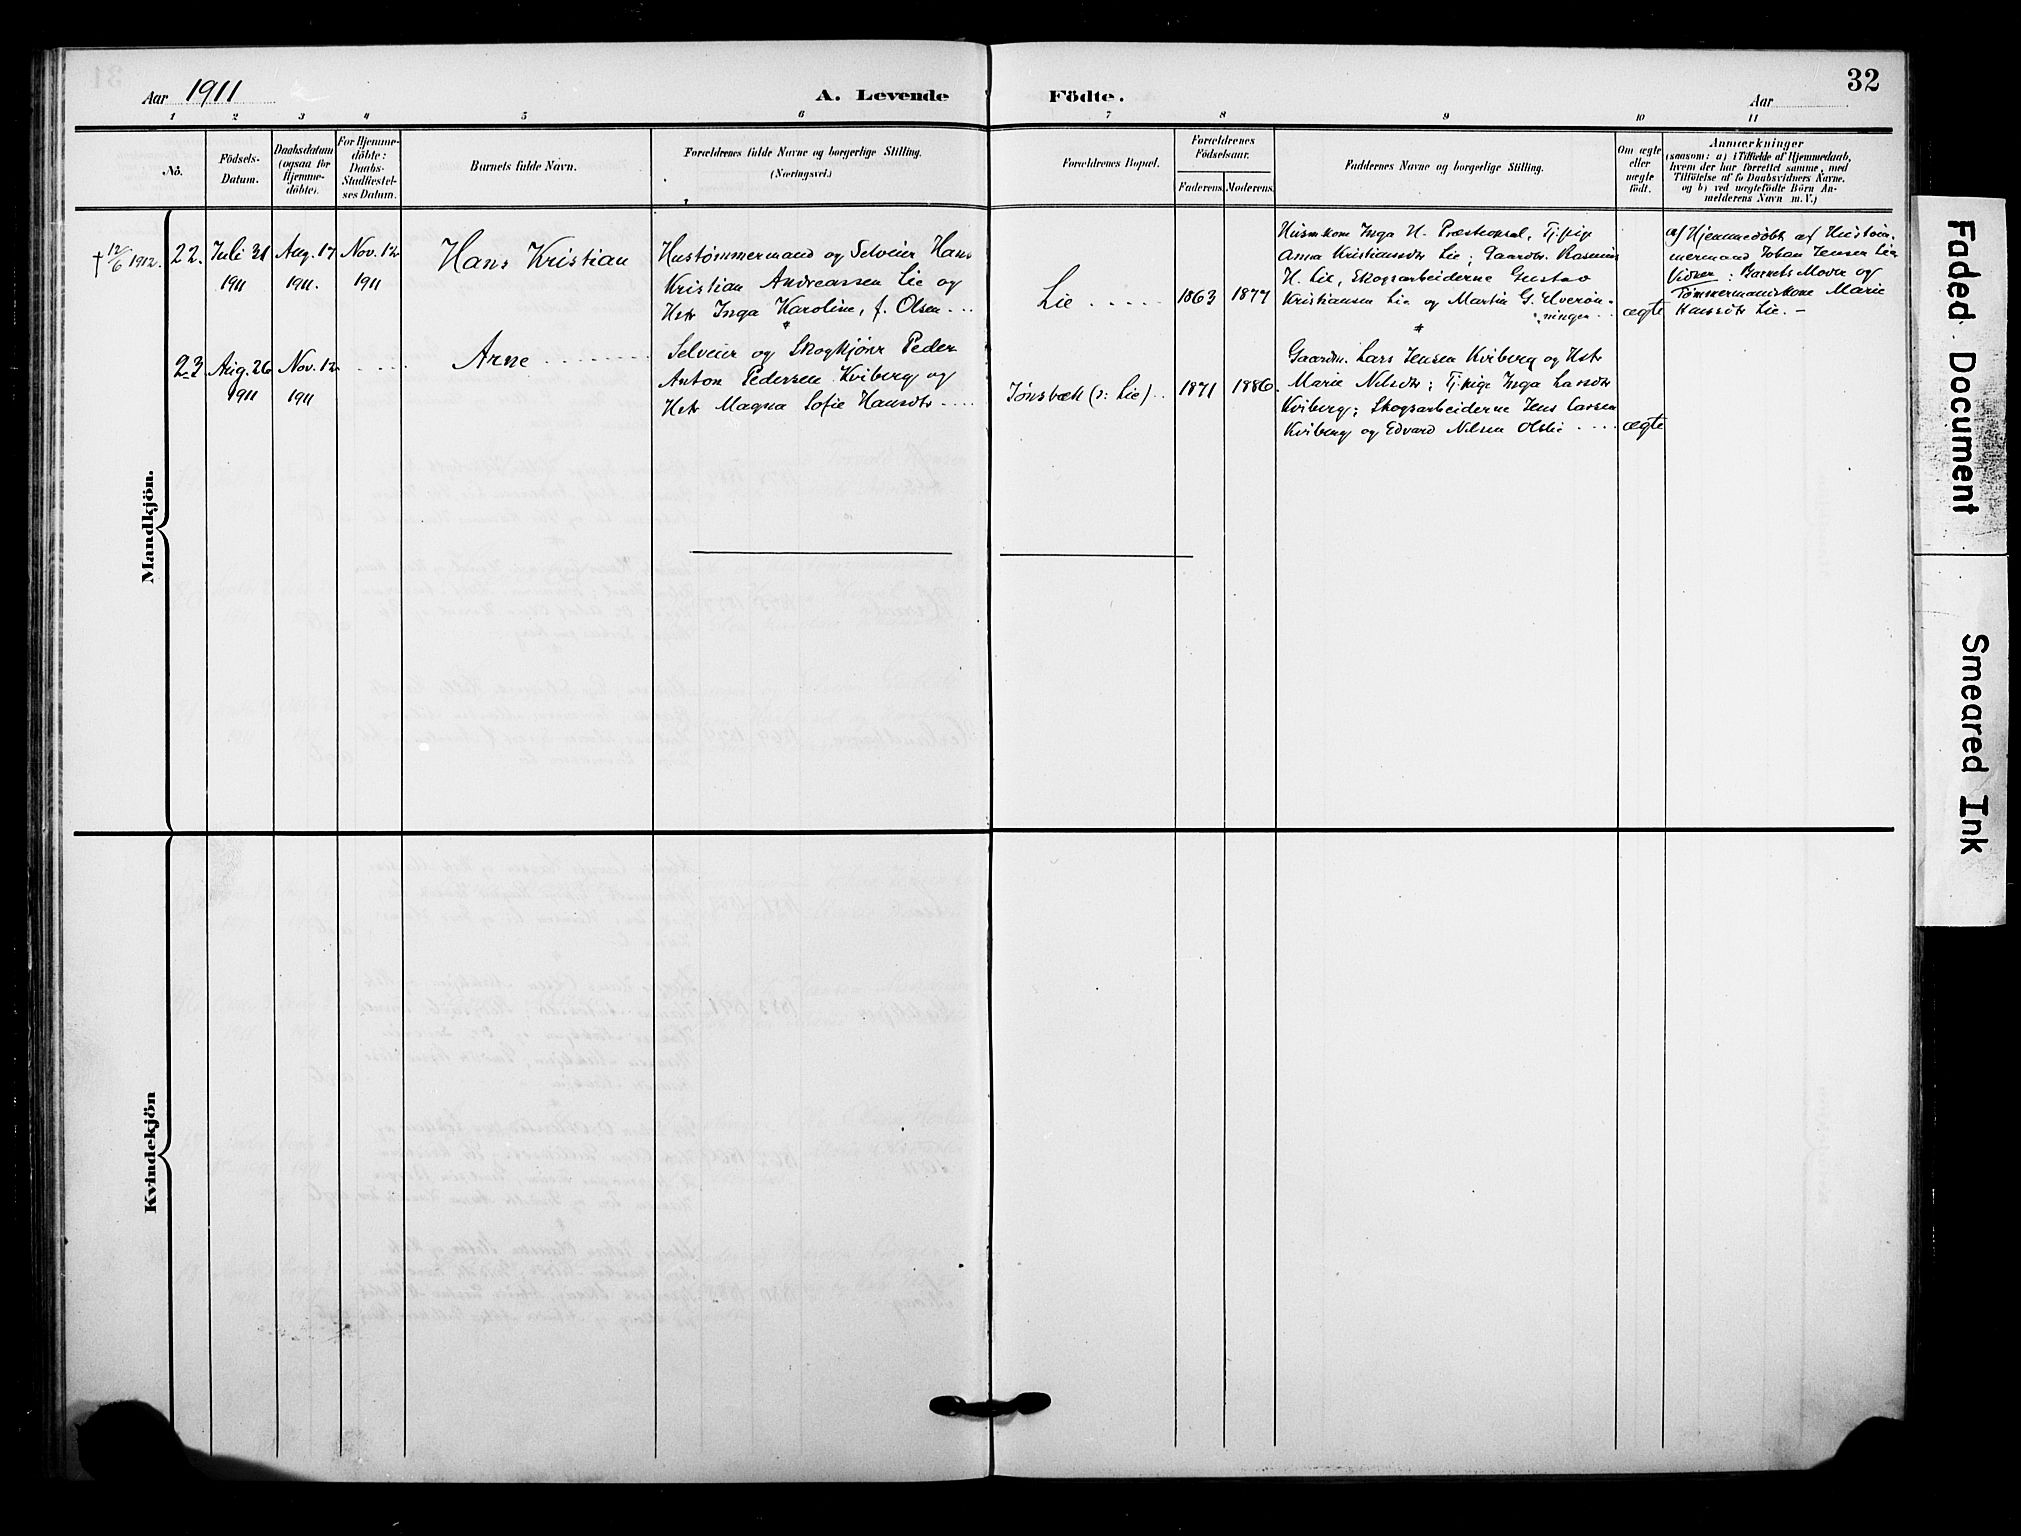 Aar 1911
A. Levende Födte.
32
Aar
1 2 3 4 5 6 7 8 9 10 11
No.
Födsels-
Datum.
Daabsdatum
(ogsaa for
Hjemme-
döbte).
For Hjemme-
döbte:
Daabs-
Stadfæstel-
ses Datum.
Barnets fulde Navn.
Forældrenes fulde Navne og borgerlige Stilling.
(Næringsvei.)
Forældrenes Bopæl.
Forældrenes
Födselsaar.
Faderens. Moderens.
Faddernes Navne og borgerlige Stilling.
Om ægte
eller
uægte
født.
Anmærkninger
(saasom: a) i Tilfælde af Hjemmedaab,
hvem der har forrettet samme, med
Tilföielse af to Daabsvidners Navne.
og b) ved uægtefödte Börn An-
melderens Navn m. V.)
Mandkjön.
† 12/6 1912.
22.
Juli 31
1911
Aug. 17
1911.
Nov. 12
1911
Hans Kristian
Hustømmermand og Selveier Hans
Kristian Andreassen Lie og
Hstr Inga Karoline, f. Olsen
Lie
1863
1877
Husmkone Inga H. Præstegsal, Tj.pig
Anna Kristiansdtr Lie; Gaardbr. Rasmus
H. Lie, Skogsarbeiderne Gustav
Kristiansen Lie og Martin G. Elverøn-
ningen
ægte
af Hjemmedøbt af Hustøm-
mermand Johan Jensen Lie
Vidner: Barnets Moder og
Tømmermandskone Marie
Hansdtr Lie.
23
Aug. 26
1911
Nov. 12
1911
Arne
Selveier og Skogkjører Peder
Anton Pedersen Kviberg og
Hstr Magna Sofie Hansdtr
Jønsbæk (s: Lie)
1871
1886.
Gaardm. Lars Jensen Kviberg og Hstr
Marie Nilsdtr; Tj.pige Inga Larsdtr
Kviberg; Skogsarbeiderne Jens Larsen
Kviberg og Edvard Nilsen Olslie
ægte
Kvindekjön
Faded Document
Smeared Ink